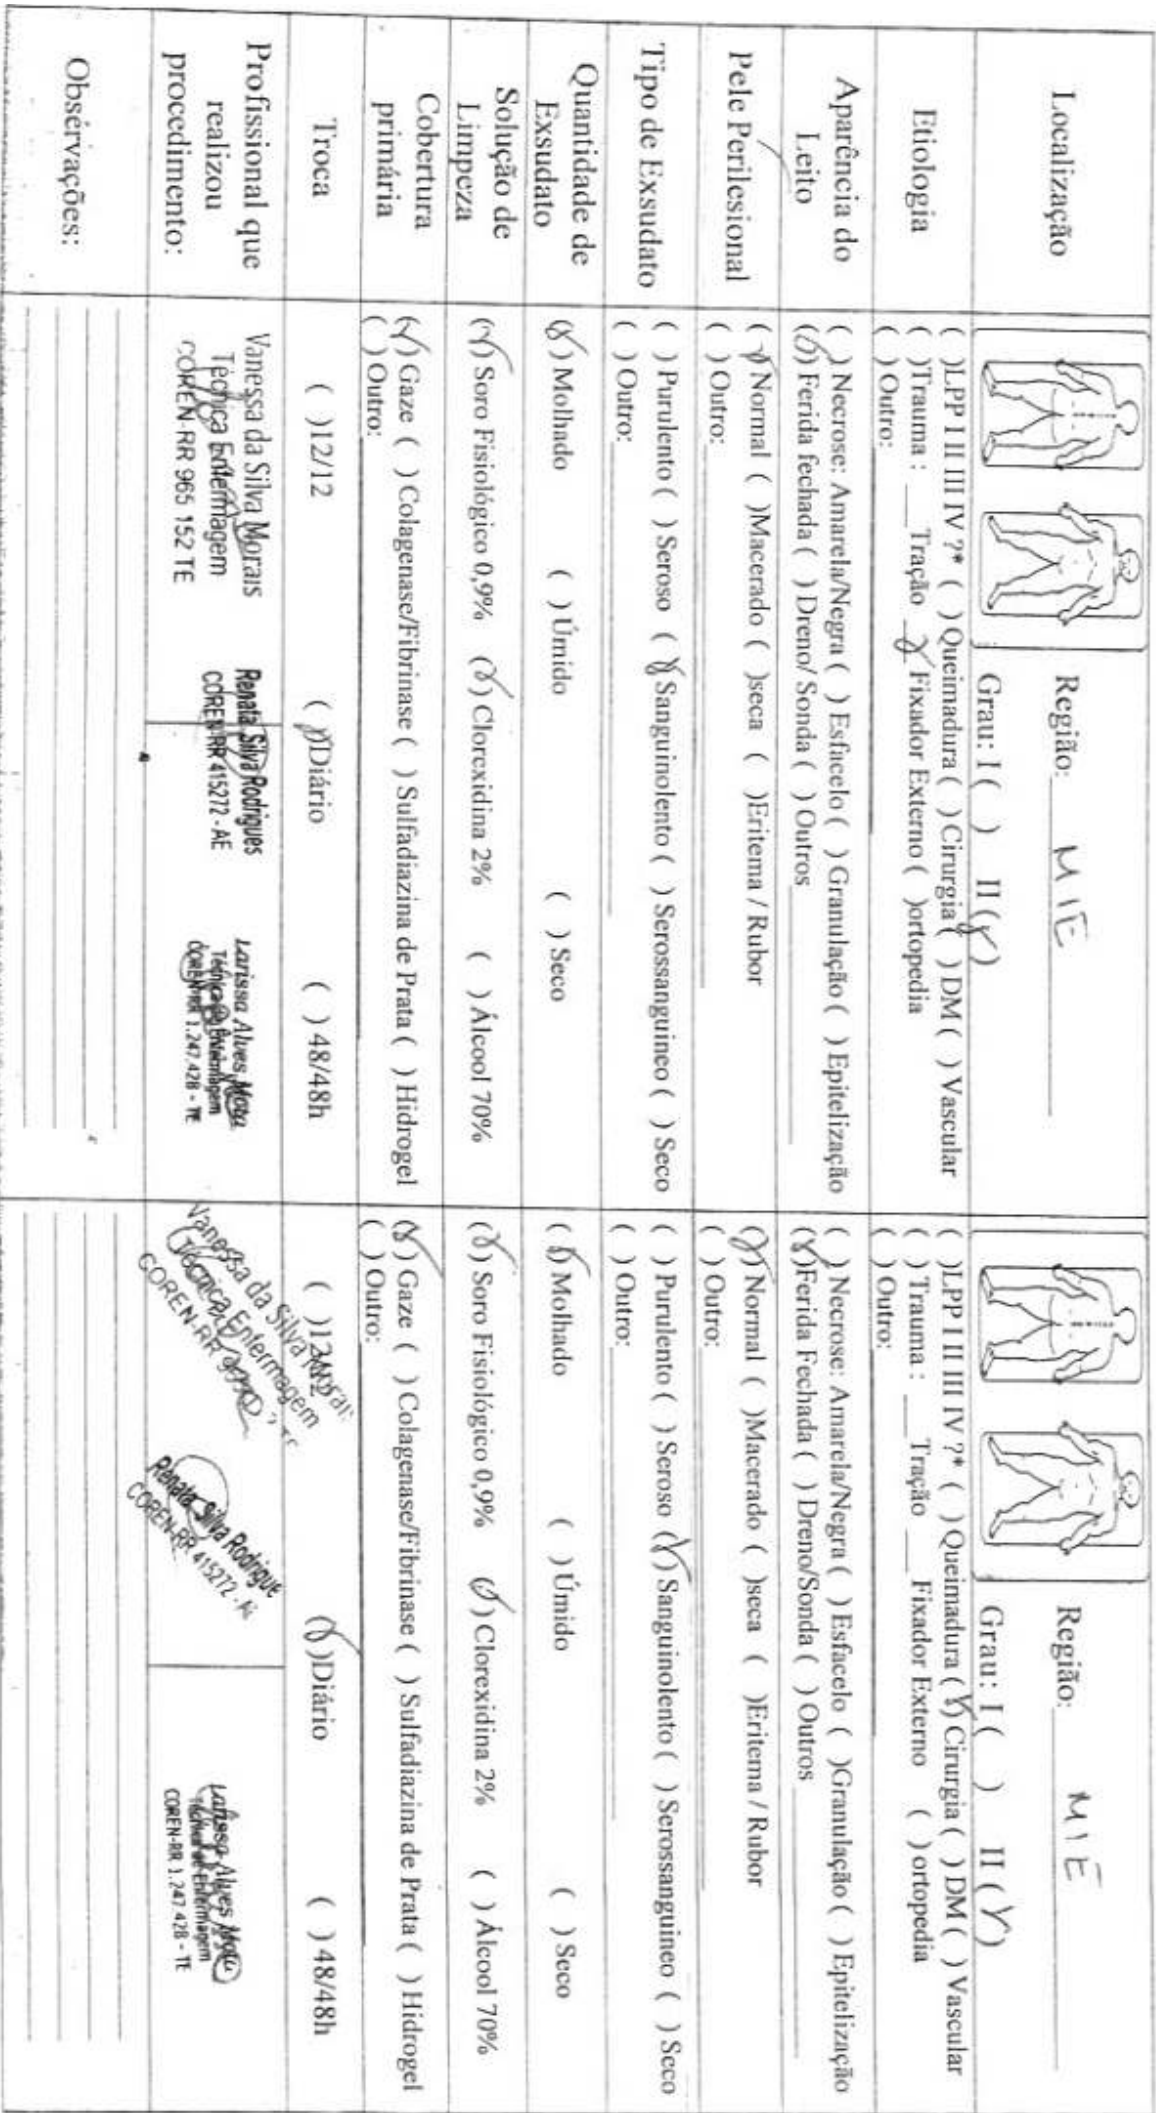 Localização
Região: MIE
Grau: I ( ) II (X)
Região: MIE
Grau: I ( ) II (X)
Etiologia
( )LPP I II III IV ?* ( ) Queimadura ( ) Cirurgia ( ) DM ( ) Vascular
( )Trauma : ___ Tração _X_ Fixador Externo ( )ortopedia
( ) Outro:
( )LPP I II III IV ?* ( ) Queimadura (X) Cirurgia ( ) DM ( ) Vascular
( ) Trauma : ___ Tração ___ Fixador Externo ( ) ortopedia
( ) Outro:
Aparência do
Leito
( ) Necrose: Amarela/Negra ( ) Esfacelo ( ) Granulação ( ) Epitelização
(X) Ferida fechada ( ) Dreno/ Sonda ( ) Outros
( ) Necrose: Amarela/Negra ( ) Esfacelo ( )Granulação ( ) Epitelização
(X)Ferida Fechada ( ) Dreno/Sonda ( ) Outros
Pele Perilesional
(X)Normal ( )Macerado ( )seca ( )Eritema / Rubor
( ) Outro:
(X)Normal ( )Macerado ( )seca ( )Eritema / Rubor
( ) Outro:
Tipo de Exsudato
( ) Purulento ( ) Seroso (X) Sanguinolento ( ) Serossanguineo ( ) Seco
( ) Outro:
( ) Purulento ( ) Seroso (X) Sanguinolento ( ) Serossanguineo ( ) Seco
( ) Outro:
Quantidade de
Exsudato
(X) Molhado ( ) Úmido ( ) Seco
(X) Molhado ( ) Úmido ( ) Seco
Solução de
Limpeza
(X) Soro Fisiológico 0,9% (X) Clorexidina 2% ( ) Álcool 70%
(X) Soro Fisiológico 0,9% (X) Clorexidina 2% ( ) Álcool 70%
Cobertura
primária
(X) Gaze ( ) Colagenase/Fibrinase ( ) Sulfadiazina de Prata ( ) Hidrogel
( ) Outro:
(X) Gaze ( ) Colagenase/Fibrinase ( ) Sulfadiazina de Prata ( ) Hidrogel
( ) Outro:
Troca
( )12/12 (X)Diário ( ) 48/48h
( )12/12 (X)Diário ( ) 48/48h
Profissional que
realizou
procedimento:
Vanessa da Silva Morais
Técnica Enfermagem
COREN-RR 965 152 TE
Renata Silva Rodrigues
COREN-RR 415272 - AE
Larissa Alves Mota
Técnica de Enfermagem
COREN-RR 1.247.428 - TE
Vanessa da Silva Morais
Técnica Enfermagem
COREN-RR
Renata Silva Rodrigue
COREN-RR 415272 - AE
Larissa Alves Mota
Técnica de Enfermagem
COREN-RR 1.247.428 - TE
Observações: